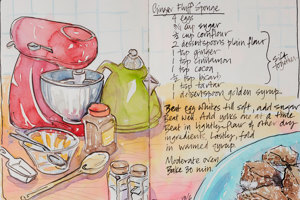 Ginger Fluff Sponge
4 eggs
3/4 cup sugar
1/2 cup cornflour
2 dessertspoons plain flour
1 tsp ginger
1 tsp cinnamon
1 tsp cocoa
1/2 tsp bicarb
1 tsp tartar
1 dessertspoon golden syrup.
sift together
Beat egg whites till soft, add sugar
Beat well. Add yolks one at a time
Beat in lightly flour & other dry
ingredients. Lastly, fold
in warmed syrup
Moderate oven
Bake 30 min.